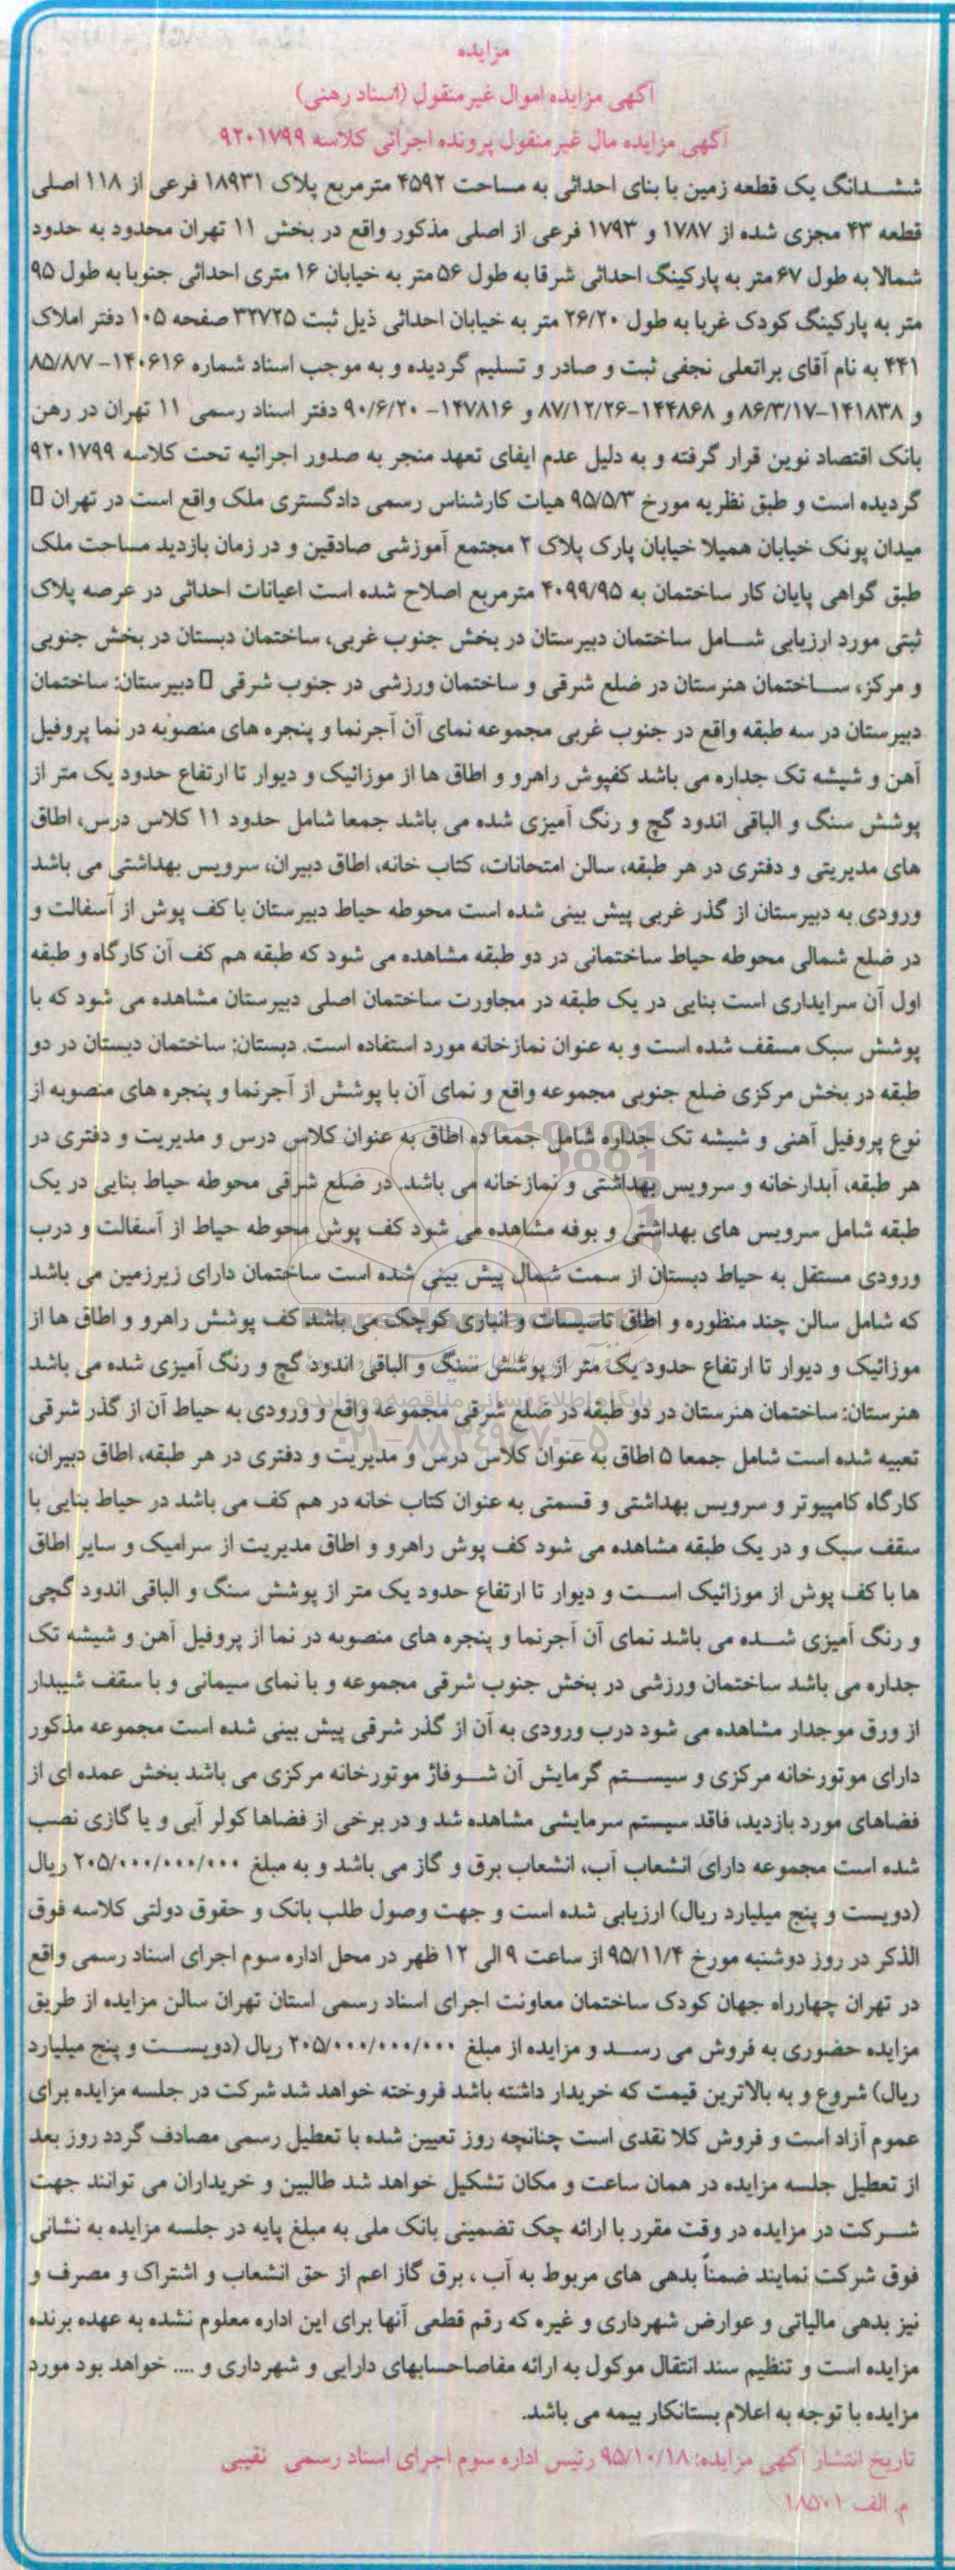 مزایده
آگهی مزایده اموال غیرمنقول (اسناد رهنی)
آگهی مزایده مال غیرمنقول پرونده اجرائی کلاسه ۹۲۰۱۷۹۹
ششدانگ یک قطعه زمین با بنای احداثی به مساحت ۴۵۹۲ مترمربع پلاک ۱۸۹۳۱ فرعی از ۱۱۸ اصلی
قطعه ۴۳ مجزی شده از ۱۷۸۷ و ۱۷۹۳ فرعی از اصلی مذکور واقع در بخش ۱۱ تهران محدود به حدود
شمالا به طول ۶۷ متر به پارکینگ احداثی شرقا به طول ۵۶ متر به خیابان ۱۶ متری احداثی جنوبا به طول ۹۵
متر به پارکینگ کودک غربا به طول ۲۶/۲۰ متر به خیابان احداثی ذیل ثبت ۳۲۷۲۵ صفحه ۱۰۵ دفتر املاک
۴۴۱ به نام آقای براتعلی نجفی ثبت و صادر و تسلیم گردیده و به موجب اسناد شماره ۱۴۰۶۱۶- ۸۵/۸/۷
و ۱۴۱۸۳۸-۸۶/۳/۱۷ و ۱۴۴۸۶۸-۸۷/۱۲/۲۶ و ۱۴۷۸۱۶- ۹۰/۶/۲۰ دفتر اسناد رسمی ۱۱ تهران در رهن
بانک اقتصاد نوین قرار گرفته و به دلیل عدم ایفای تعهد منجر به صدور اجرائیه تحت کلاسه ۹۲۰۱۷۹۹
گردیده است و طبق نظریه مورخ ۹۵/۵/۳ هیات کارشناس رسمی دادگستری ملک واقع است در تهران
میدان پونک خیابان همیلا خیابان پارک پلاک ۲ مجتمع آموزشی صادقین و در زمان بازدید مساحت ملک
طبق گواهی پایان کار ساختمان به ۴۰۹۹/۹۵ مترمربع اصلاح شده است اعیانات احداثی در عرصه پلاک
ثبتی مورد ارزیابی شامل ساختمان دبیرستان در بخش جنوب غربی، ساختمان دبستان در بخش جنوبی
و مرکز، ساختمان هنرستان در ضلع شرقی و ساختمان ورزشی در جنوب شرقی دبیرستان: ساختمان
دبیرستان در سه طبقه واقع در جنوب غربی مجموعه نمای آن آجرنما و پنجره های منصوبه در نما پروفیل
آهن و شیشه تک جداره می باشد کفپوش راهرو و اطاق ها از موزائیک و دیوار تا ارتفاع حدود یک متر از
پوشش سنگ و الباقی اندود گچ و رنگ آمیزی شده می باشد جمعا شامل حدود ۱۱ کلاس درس، اطاق
های مدیریتی و دفتری در هر طبقه، سالن امتحانات، کتاب خانه، اطاق دبیران، سرویس بهداشتی می باشد
ورودی به دبیرستان از گذر غربی پیش بینی شده است محوطه حیاط دبیرستان با کف پوش از آسفالت و
در ضلع شمالی محوطه حیاط ساختمانی در دو طبقه مشاهده می شود که طبقه هم کف آن کارگاه و طبقه
اول آن سرایداری است بنایی در یک طبقه در مجاورت ساختمان اصلی دبیرستان مشاهده می شود که با
پوشش سبک مسقف شده است و به عنوان نمازخانه مورد استفاده است. دبستان: ساختمان دبستان در دو
طبقه در بخش مرکزی ضلع جنوبی مجموعه واقع و نمای آن با پوشش از آجرنما و پنجره های منصوبه از
نوع پروفیل آهنی و شیشه تک جداره شامل جمعا ده اطاق به عنوان کلاس درس و مدیریت و دفتری در
هر طبقه، آبدارخانه و سرویس بهداشتی و نمازخانه می باشد. در ضلع شرقی محوطه حیاط بنایی در یک
طبقه شامل سرویس های بهداشتی و بوفه مشاهده می شود کف پوش محوطه حیاط از آسفالت و درب
ورودی مستقل به حیاط دبستان از سمت شمال پیش بینی شده است ساختمان دارای زیرزمین می باشد
که شامل سالن چند منظوره و اطاق تاسیسات و انباری کوچک می باشد کف پوشش راهرو و اطاق ها از
موزائیک و دیوار تا ارتفاع حدود یک متر از پوشش سنگ و الباقی اندود گچ و رنگ آمیزی شده می باشد
هنرستان: ساختمان هنرستان در دو طبقه در ضلع شرقی مجموعه واقع و ورودی به حیاط آن از گذر شرقی
تعبیه شده است شامل جمعا ۵ اطاق به عنوان کلاس درس و مدیریت و دفتری در هر طبقه، اطاق دبیران،
کارگاه کامپیوتر و سرویس بهداشتی و قسمتی به عنوان کتاب خانه در هم کف می باشد در حیاط بنایی با
سقف سبک و در یک طبقه مشاهده می شود کف پوش راهرو و اطاق مدیریت از سرامیک و سایر اطاق
ها با کف پوش از موزائیک است و دیوار تا ارتفاع حدود یک متر از پوشش سنگ و الباقی اندود گچی
و رنگ آمیزی شده می باشد نمای آن آجرنما و پنجره های منصوبه در نما از پروفیل آهن و شیشه تک
جداره می باشد ساختمان ورزشی در بخش جنوب شرقی مجموعه و با نمای سیمانی و با سقف شیبدار
از ورق موجدار مشاهده می شود درب ورودی به آن از گذر شرقی پیش بینی شده است مجموعه مذکور
دارای موتورخانه مرکزی و سیستم گرمایش آن شوفاژ موتورخانه مرکزی می باشد بخش عمده ای از
فضاهای مورد بازدید، فاقد سیستم سرمایشی مشاهده شد و در برخی از فضاها کولر آبی و یا گازی نصب
شده است مجموعه دارای انشعاب آب، انشعاب برق و گاز می باشد و به مبلغ ۲۰۵/۰۰۰/۰۰۰/۰۰۰ ریال
(دویست و پنج میلیارد ریال) ارزیابی شده است و جهت وصول طلب بانک و حقوق دولتی کلاسه فوق
الذکر در روز دوشنبه مورخ ۹۵/۱۱/۴ از ساعت ۹ الی ۱۲ ظهر در محل اداره سوم اجرای اسناد رسمی واقع
در تهران چهارراه جهان کودک ساختمان معاونت اجرای اسناد رسمی استان تهران سالن مزایده از طریق
مزایده حضوری به فروش می رسد و مزایده از مبلغ ۲۰۵/۰۰۰/۰۰۰/۰۰۰ ریال (دویست و پنج میلیارد
ریال) شروع و به بالاترین قیمت که خریدار داشته باشد فروخته خواهد شد شرکت در جلسه مزایده برای
عموم آزاد است و فروش کلا نقدی است چنانچه روز تعیین شده با تعطیل رسمی مصادف گردد روز بعد
از تعطیل جلسه مزایده در همان ساعت و مکان تشکیل خواهد شد طالبین و خریداران می توانند جهت
شرکت در مزایده در وقت مقرر با ارائه چک تضمینی بانک ملی به مبلغ پایه در جلسه مزایده به نشانی
فوق شرکت نمایند ضمناً بدهی های مربوط به آب ، برق گاز اعم از حق انشعاب و اشتراک و مصرف و
نیز بدهی مالیاتی و عوارض شهرداری و غیره که رقم قطعی آنها برای این اداره معلوم نشده به عهده برنده
مزایده است و تنظیم سند انتقال موکول به ارائه مفاصاحسابهای دارایی و شهرداری و .... خواهد بود مورد
مزایده با توجه به اعلام بستانکار بیمه می باشد.
تاریخ انتشار آگهی مزایده: ۹۵/۱۰/۱۸ رئیس اداره سوم اجرای اسناد رسمی نقیبی
م. الف ۱۸۵۰۱